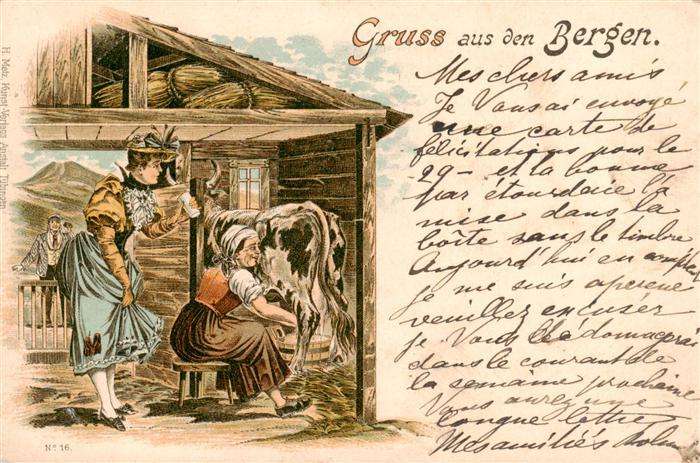 Gruss aus den Bergen.
Mes chers amis
Je Vous ai envoyé
une carte de
félicitations pour le
29 - et la bonne
par étourderie l'a
mise dans la
boîte sans le timbre
Aujourd'hui en
je me suis aperçue
veuillez excuser
je Vous dédomagerai
dans le courant de
la semaine prochaine
Vous aurez une
longue lettre
Mes amitiés
H. Metz, Kunst-Verlag-Anstalt, Tübingen
No 16.